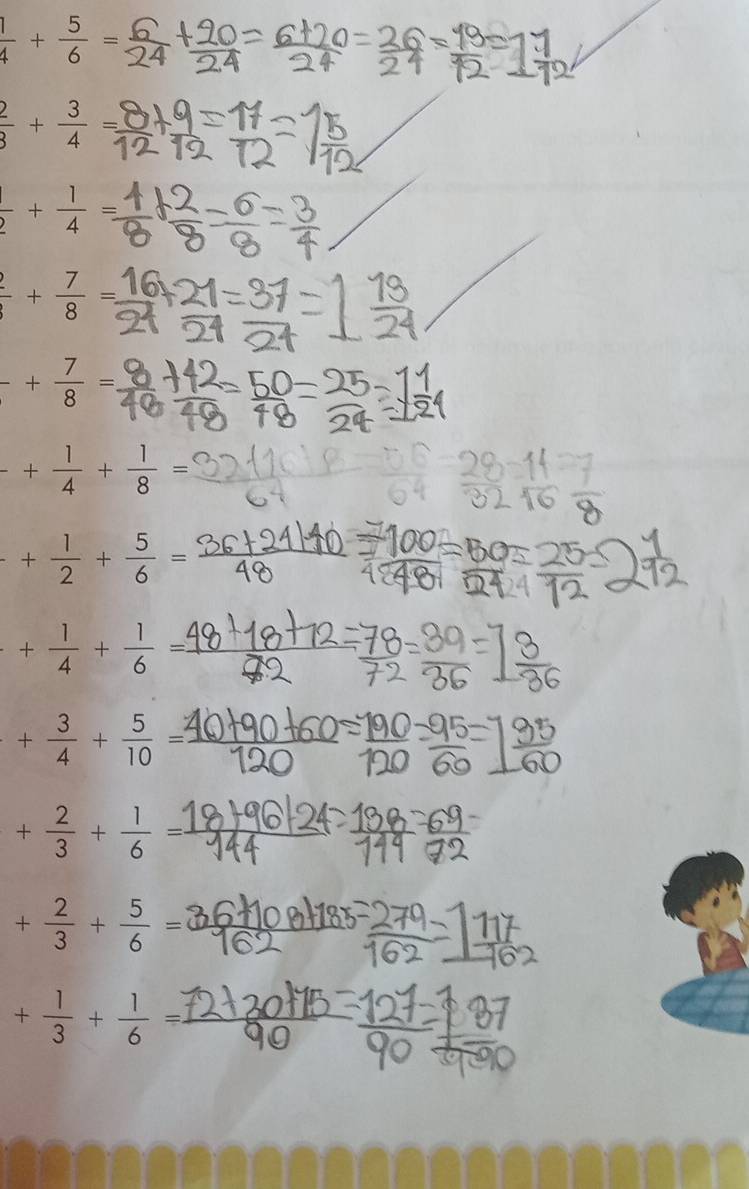 1/4 + 5/6 = 6/24 + 20/24 = 6+20/24 = 26/24 = 13/12 = 1 1/12
2/3 + 3/4 = 8/12 + 9/12 = 17/12 = 1 5/12
1/2 + 1/4 = 4/8 + 2/8 = 6/8 = 3/4
2/3 + 7/8 = 16/24 + 21/24 = 37/24 = 1 13/24
+ 7/8 = 8/48 + 42/48 = 50/48 = 25/24 = 1 1/24
+ 1/4 + 1/8 = 32+16+8/64 = 56/64 = 28/32 = 14/16 = 7/8
+ 1/2 + 5/6 = 36+24+40/48 = 100/48 = 50/24 = 25/12 = 2 1/12
+ 1/4 + 1/6 = 48+18+12/72 = 78/72 = 39/36 = 1 3/36
+ 3/4 + 5/10 = 40+90+60/120 = 190/120 = 95/60 = 1 35/60
+ 2/3 + 1/6 = 18+96+24/144 = 138/144 = 69/72
+ 2/3 + 5/6 = 36+108+135/162 = 279/162 = 1 117/162
+ 1/3 + 1/6 = 72+30+15/90 = 127/90 = 1 37/90